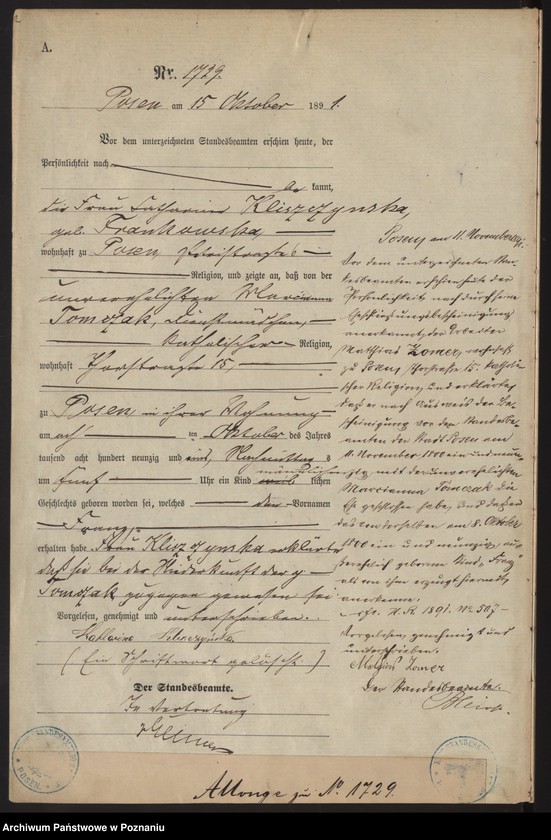 A.
Nr. 1729.
Posen am 15 Oktober 1891.
Vor dem unterzeichneten Standesbeamten erschien heute, der
Persönlichkeit nach
kannt,
die Frau Catharina Kliszczynska,
geb. Frankowska,
wohnhaft zu Posen
Religion, und zeigte an, daß von der
unverehelichten Marianna
Tomczak, Dienstmädchen,
katholischer Religion,
wohnhaft Thorstraße 15,
zu Posen in ihrer Wohnung
am acht ten Oktober des Jahres
tausend acht hundert neunzig und eins, Nachmittags
um fünf Uhr ein Kind männlichen
Geschlechts geboren worden sei, welches den Vornamen
Franz
erhalten habe. Frau Kliszczynska erklärte
daß sie bei der Niederkunft der p
Tomczak zugegen gewesen sei
Vorgelesen, genehmigt und unterschrieben.
(Ein Druckwort gelöscht)
Der Standesbeamte.
In Vertretung
Posen, am 11. November 1891.
Vor dem unterzeichneten Stan-
desbeamten erschien heute der
Persönlichkeit nach durch
anerkannt, der Arbeiter
Matthias Zomer, wohnhaft
zu Posen Thorstraße 15, katholi-
scher Religion, und erklärte,
daß er nach Ausweis der Be-
scheinigung vor dem Standesbe-
amten der Stadt Posen am
mit der unverehelichten
Marcianna Tomczak die
Ehe geschlossen habe, und daß er
das von derselben am 8. Oktober
geborene Kind "Franz"
als von ihm erzeugt hiermit
anerkenne.
H. R. 1891. No. 507
Vorgelesen, genehmigt und
unterschrieben.
Zomer
Der Standesbeamte.
POSEN
Allonge zu No. 1729.
Archiwum Państwowe w Poznaniu